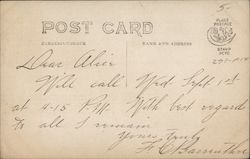 5-
POST CARD
CORRESPONDENCE
NAME AND ADDRESS
PLACE
POSTAGE
STAMP
HERE
Dear Alice
Will call Wed Sept 1st
at 4-15 P.M. With best regard
to all I remain
Yours truly